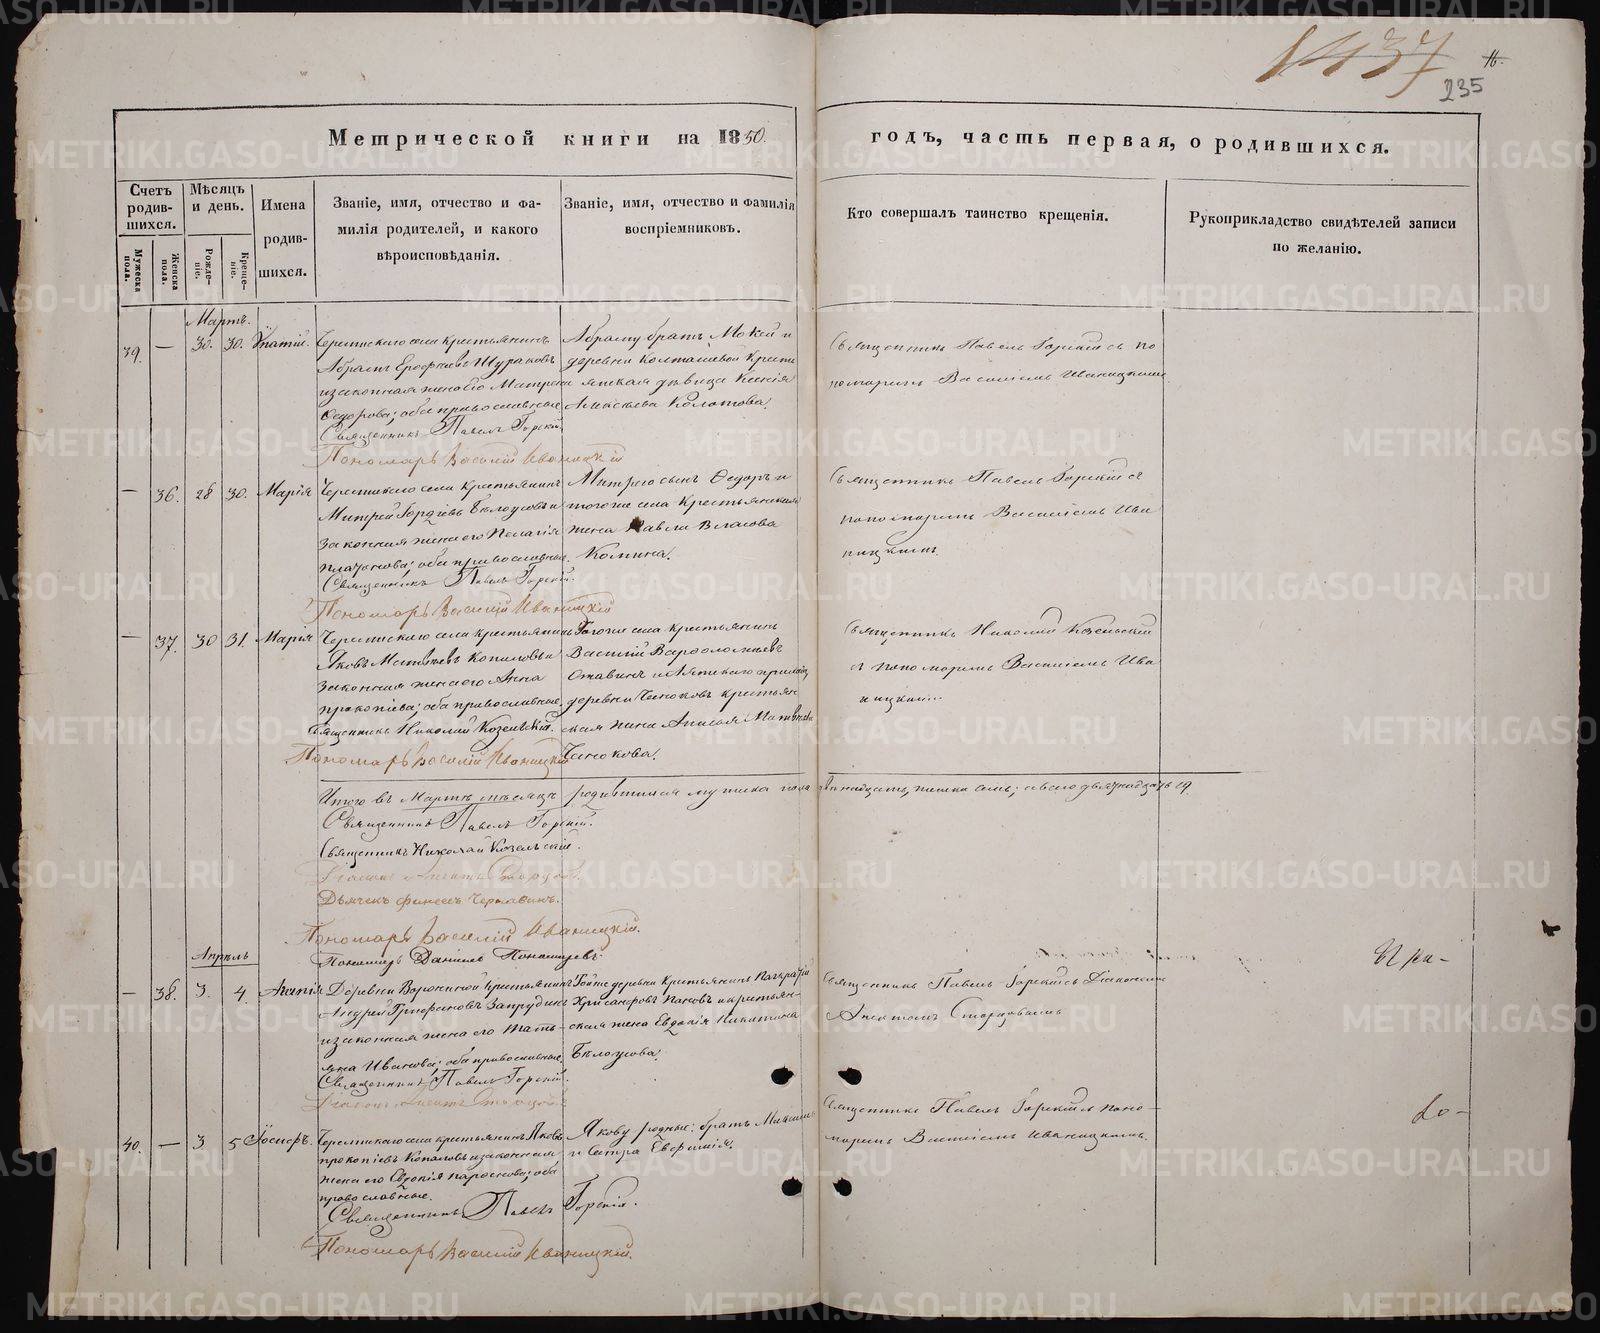 1437
16.
235
Метрической книги на 1850. годъ, часть первая, о родившихся.
Счетъ родив-шихся.
Мѣсяцъ и день.
Имена родив-шихся.
Званіе, имя, отчество и фа-
милія родителей, и какого
вѣроисповѣданія.
Званіе, имя, отчество и фамилія
воспріемниковъ.
Кто совершалъ таинство крещенія.
Рукоприкладство свидѣтелей записи
по желанію.
Мужеска пола.
Женска пола.
Рожде-ніе.
Креще-ніе.
Мартъ.
39. — 30. 30. Ѵпатій.
села крестьянинъ
Абрамъ Ерофѣевъ Шураковъ
и законная жена его Матрена
Ѳедорова; оба православные
Священникъ Павелъ Горскій.
Пономарь Василій Иваницкій
Абраму братъ Мокей и
деревни Колташевой крестьянская дѣвица Ксенія
Алексѣева Колотова.
Священникъ Павелъ Горскій съ по
номаремъ Василіемъ Иваницкимъ
— 36. 28 30. Марія
села крестьянинъ
Митрей Гордѣевъ Бѣлоусовъ и
законная жена его Пелагія
Платонова; оба православные.
Священникъ Павелъ Горскій.
Пономарь Василій Иваницкій
Митрею сынъ Ѳедоръ и
тогоже села Крестьянская
жена Павла Власова
Комина.
Священникъ Павелъ Горскій съ
пономаремъ Василіемъ Ива
ницкимъ.
— 37. 30 31. Марія
села крестьянинъ
Яковъ Матвѣевъ Копыловъ и
законная жена его Анна
Прокопіева; оба православные.
Священникъ Николай Козельскій.
Пономарь Василій Иваницкій
Тогоже села крестьянинъ
Василій Варѳоломѣевъ
деревни крестьян
ская жена Матвѣева
Священникъ Николай Козельскій
съ пономаремъ Василіемъ Ива
ницкимъ.
Итого въ Мартѣ мѣсяцѣ родившихся мужеска пола двенадцать, женска семь; а всего девятнадцать 19.
Священникъ Павелъ Горскій.
Священникъ Николай Козельскій.
Дьячекъ Финеесъ Чернавинъ.
Пономарь Василій Иваницкій.
Пономарь Данило Пономаревъ.
Апрѣль
— 38. 3. 4. Агапія
Деревни Ворониной Крестьянинъ
Андрей Трифановъ Запрудинъ
и законная жена его Тать-
яна Иванова; оба православные.
Священникъ Павелъ Горскій.
Тойже деревни Крестьянинъ Панкратій
Хрисанфовъ Пановъ и крестьян-
ская жена Евдокія Никитина
Бѣлоусова.
Священникъ Павелъ Горскій съ Діакономъ
И ри-
40. — 3 5 Іосифъ.
села крестьянинъ Яковъ
Прокопіевъ Копыловъ и законная
жена его Евдокія; оба
православные.
Священникъ Павелъ Горскій.
Пономарь Василій Иваницкій.
Якову родные: братъ Максимъ
и сестра Евфимія.
Священникъ Павелъ Горскій съ поно-
маремъ Василіемъ Иваницкимъ.